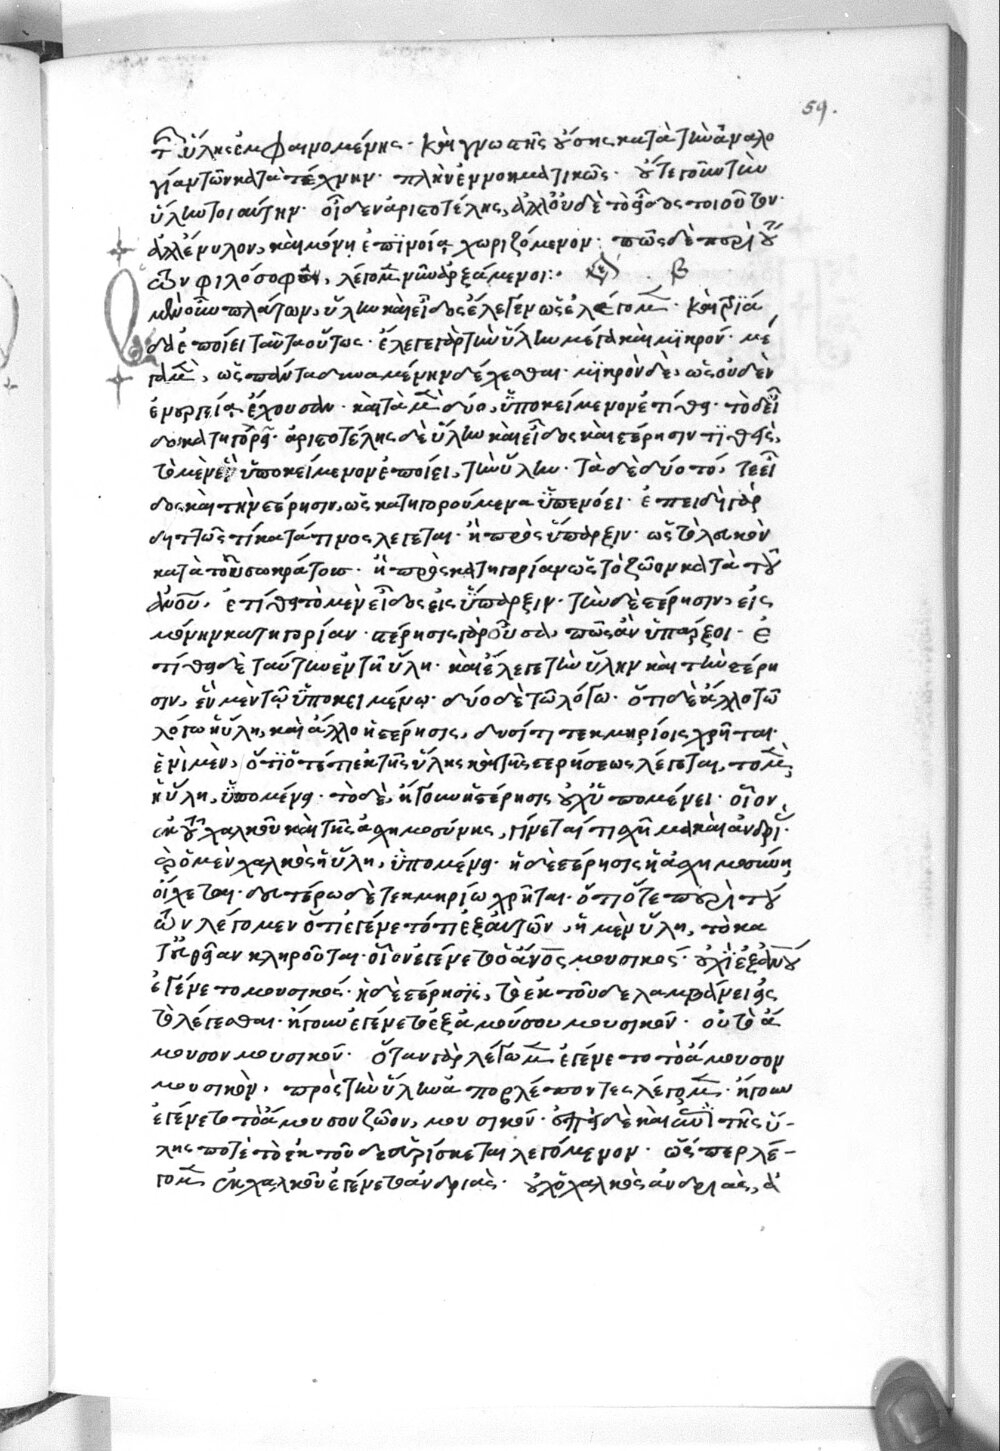 59.
τῆς ὕλης ἐμφαινομένης· καὶ γνωστῆς οὔσης κατὰ τὴν ἀναλο
γίαν τῶν κατὰ τέχνην· πλὴν ἐννοηματικῶς· οὔτε γοῦν τὴν
ὕλην τοιαύτην οἶδεν ἀριστοτέλης, ἀλλ' οὐδὲ τὸ εἶδος τοιοῦτον·
ἀλλ' ἔνυλον, καὶ μόνῃ ἐπινοίᾳ χωριζόμενον· πῶς δὲ περὶ τούτων
φιλόσοφον, λέγομεν ἀρξάμενοι:· κεφ . β
μὲν οὖν πλάτων, ὕλην καὶ εἶδος ἔλεγεν ὡς ἐλέγομεν· καὶ τριά
δα ἐποίει ταῦτα οὕτως· ἔλεγε γὰρ τὴν ὕλην μέγα καὶ μικρόν· μέ
γα μὲν, ὡς πάντα δυναμένην δέχεσθαι· μικρὸν δὲ, ὡς οὐδὲν
ἐνεργείᾳ ἔχουσαν· κατὰ μὲν δύο, ὑποκείμενον ἐτίθει· τὸ δὲ εἶ
δος κατηγορεῖ· ἀριστοτέλης δὲ ὕλην καὶ εἶδος καὶ στέρησιν τιθεὶς,
τὸ μὲν ἓν ὑποκείμενον ἐποίει, τὴν ὕλην· τὰ δὲ δύο τό, τε εἶ
δος καὶ τὴν στέρησιν, ὡς κατηγορούμενα ὑπενόει· ἐπειδὴ γὰρ
διττῶς τὶ κατά τινος λέγεται· ἢ πρὸς ὕπαρξιν· ὡς τὸ λευκὸν
κατὰ τοῦ σωκράτους· ἢ πρὸς κατηγορίαν ὡς τὸ ζῶον κατὰ τοῦ
ἀνου, ἐτίθει τὸ μὲν εἶδος εἰς ὕπαρξιν· τὴν δὲ στέρησιν, εἰς
μόνην κατηγορίαν· στέρησις γὰρ οὖσα, πῶς ἂν ὑπάρξοι· ἐ
τίθει δὲ ταύτην ἐν τῇ ὕλῃ· καὶ ἔλεγε τὴν ὕλην καὶ τὴν στέρη
σιν, ἓν μὲν τῷ ὑποκειμένῳ· δύο δὲ τῷ λόγῳ· ὅτι δὲ ἄλλο τῷ
λόγῳ ἡ ὕλη, καὶ ἄλλο ἡ στέρησις, δυσί τισι τεκμηρίοις χρῆται·
ἑνὶ μὲν, ὅτι ὅτέ τι ἐκ τῆς ὕλης καὶ τῆς στερήσεως λέγεται, τὸ μὲν
ἡ ὕλη, ὑπομένει· τὸ δὲ, ἤγουν ἡ στέρησις οὐχ ὑπομένει· οἷον,
ἐκ τοῦ χαλκοῦ καὶ τῆς ἀσχημοσύνης, γίνεταί τι σχῆμα καὶ ἀνδριάς·
ὁ μὲν χαλκὸς ἡ ὕλη, ὑπομένει· ἡ δὲ στέρησις ἡ ἀσχημοσύνη
οἴχεται· δευτέρω δὲ τεκμηρίω χρῆται· ὅτι ὅτε περὶ τού
των λέγομεν ὅτι ἐγένετό τι ἐξ αὐτῶν, ἡ μὲν ὕλη, τὸ κα
τ' εὐθεῖαν κληροῦται· οἷον ἐγένετο ὁ ἄνος μουσικός· οὐχὶ ἐξ ἀνου
ἐγένετο μουσικός· ἡ δὲ στέρησις, τὸ ἐκ τοῦδε λαμβάνει εἰς
τὸ λέγεσθαι· ἤγουν ἐγένετο ἐξ ἀμούσου μουσικόν· οὐ τὸ ἄ
μουσον μουσικόν· ὅταν γὰρ λέγωμεν ἐγένετο τὸ ἄμουσον
μουσικὸν, πρὸς τὴν ὕλην ἀποβλέποντες λέγομεν· ἤγουν
ἐγένετο τὸ ἄμουσον ζῶον, μουσικόν· δὲ καὶ ἀντὶ τῆς ὕ-
λης ποτὲ τὸ ἐκ τοῦδε εὑρίσκεται λεγόμενον· ὥσπερ λέ-
γομεν ἐκ χαλκοῦ ἐγένετο ἀνδριάς· οὐχ ὁ χαλκὸς ἀνδριὰς, ἀ